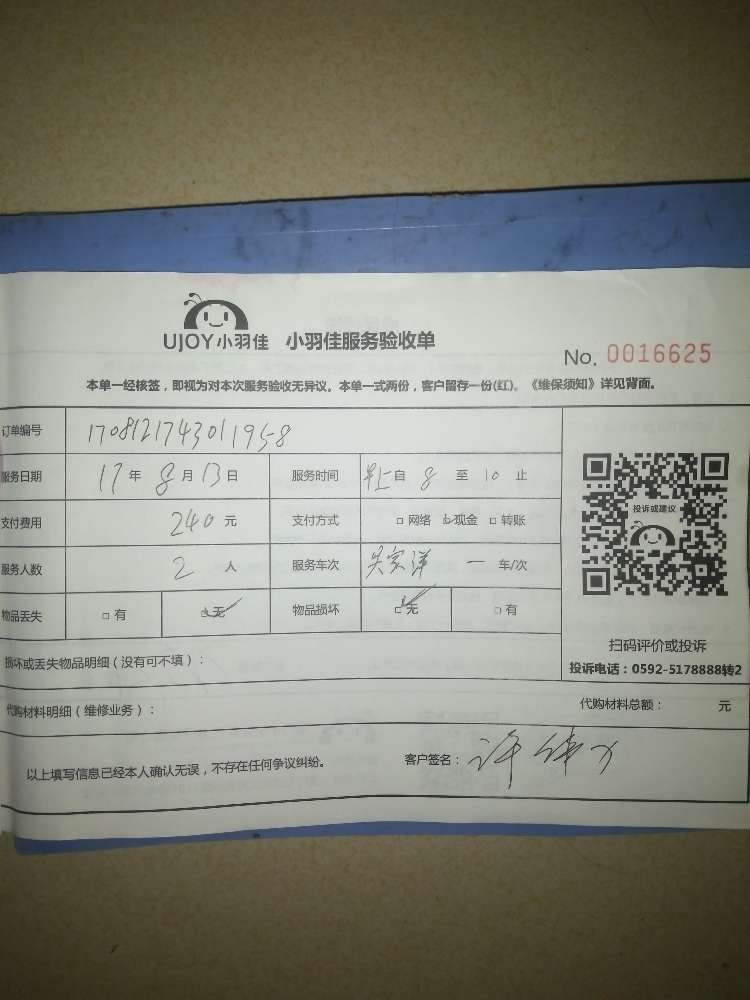 UJOY小羽佳 小羽佳服务验收单
No. 0016625
本单一经核签，即视为对本次服务验收无异议。本单一式两份，客户留存一份(红)。《维保须知》详见背面。
订单编号 1708121743011958
服务日期 17 年 8 月 13 日 服务时间 自 8 至 10 止
投诉或建议
支付费用 240 元 支付方式 □ 网络 □ 现金 □ 转账
服务人数 2 人 服务车次 一 车/次
物品丢失 □ 有 □ 无 物品损坏 □ 无 □ 有
扫码评价或投诉
损坏或丢失物品明细（没有可不填）：
投诉电话：0592-5178888转2
代购材料明细（维修业务）： 代购材料总额： 元
以上填写信息已经本人确认无误，不存在任何争议纠纷。 客户签名：许